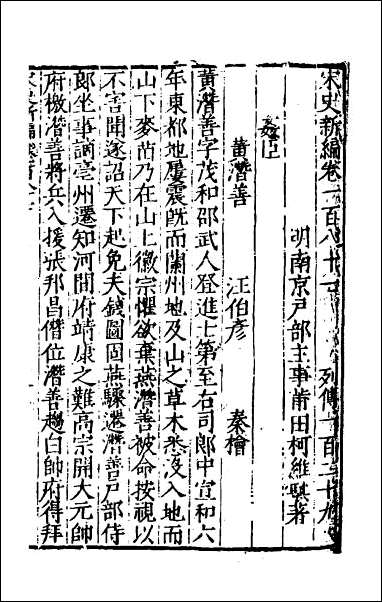 宋史新編卷一百八十七 列傳一百二十九
明南京戶部主事莆田柯維騏著
姦臣
黃潛善 汪伯彥 秦檜
黃潛善字茂和邵武人登進士第至右司郎中宣和六
年東都地屢震旣而蘭州地及山之草木悉沒入地而
山下麥苗乃在山上徽宗懼欲棄燕潛善被命按視以
不害聞遂詔天下起免夫錢圖固燕驟遷潛善戶部侍
郎坐事謫亳州遷知河間府靖康之難高宗開大元帥
府檄潛善將兵入援張邦昌僭位潛善趨白帥府得拜